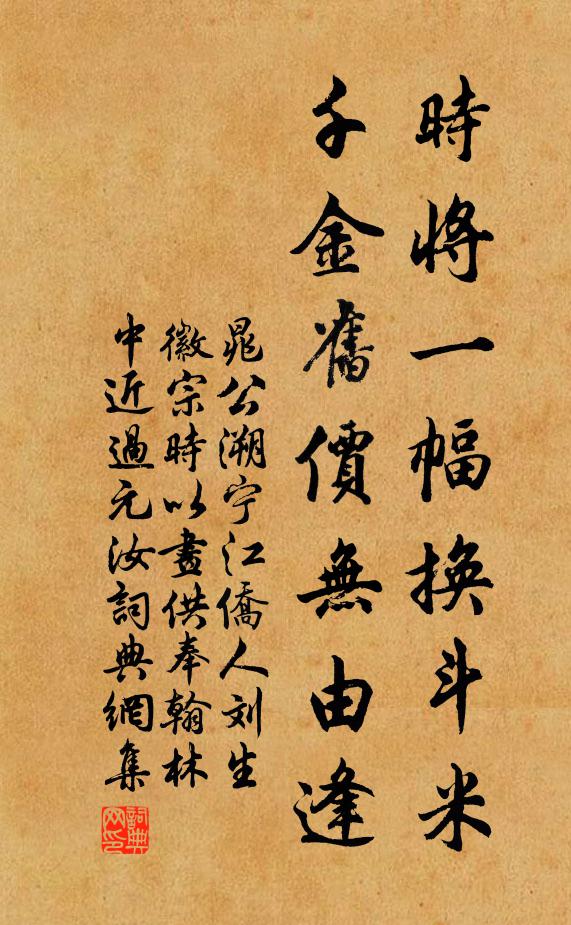 時將一幅換斗米
千金舊價無由逢
晁公溯宁江僑人刘生
徽宗時以畫供奉翰林
中近過元汝詞典網集
詞典网印